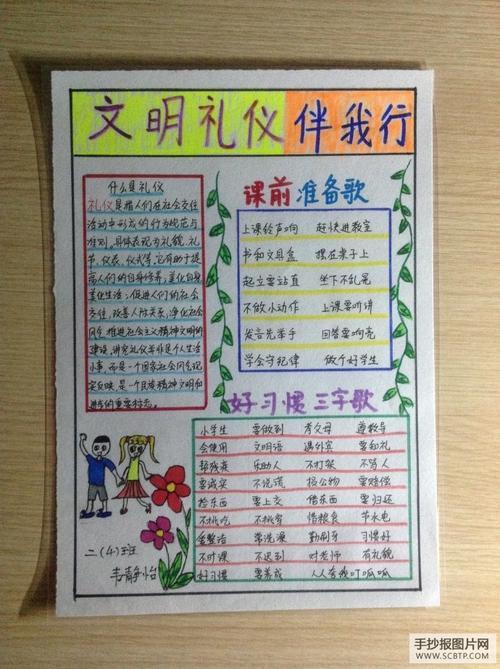 文明礼仪伴我行
什么是礼仪
礼仪是指人们在社会交往
活动中形成的行为规范与
准则。具体表现为礼貌、礼
节、仪表、仪式等。它有助于提
高人们的自身修养，美化自身，
美化生活；促进人们的社会
交往，改善人际关系，净化社会
风气，推进社会主义精神文明的
建设。讲究礼仪并非是个人生活
小事，而是一个国家社会风气现
实反映，是一个民族精神文明和
进步的重要标志。
课前准备歌
上课铃声响 赶快进教室
书和文具盒 摆在桌子上
起立要站直 坐下不乱晃
不做小动作 上课要听讲
发言先举手 回答要响亮
学会守纪律 做个好学生
好习惯三字歌
小学生 要做到 孝父母 遵教导
会使用 文明语 遇外宾 要有礼
帮残疾 乐助人 不打架 不骂人
要诚实 不说谎 损公物 要赔偿
捡东西 要上交 借东西 要归还
不挑吃 不挑穿 惜粮食 节水电
会整洁 常洗澡 勤刷牙 习惯好
不旷课 不迟到 对老师 有礼貌
好习惯 要养成 人人夸我 叮呱呱
二(4)班
手抄报图片网
WWW.SCBTP.COM